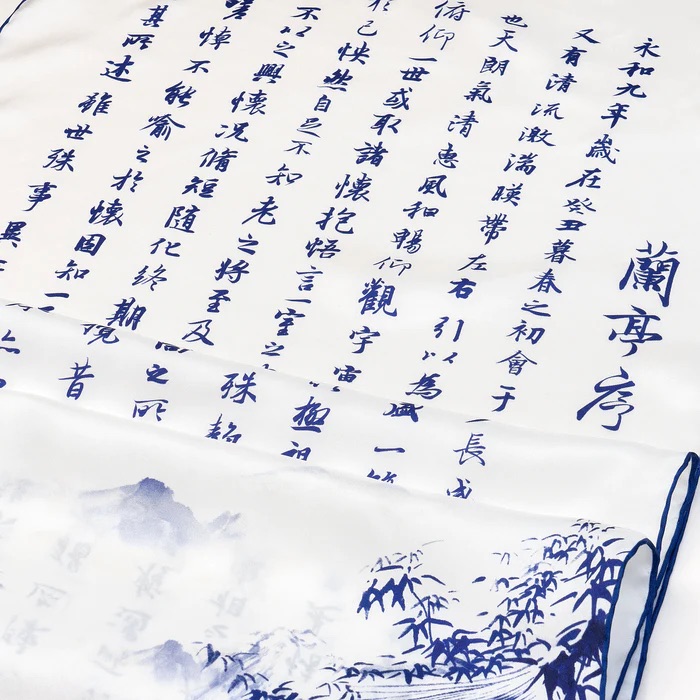 蘭亭序
永和九年歲在癸丑暮春之初會于
又有清流激湍暎帶左右引以為
也天朗氣清惠風和暢仰觀宇宙
俯仰一世或取諸懷抱悟言一室之
於己怏然自足不知老之將至及
不以之興懷況脩短隨化終期
嗟悼不能喻之於懷固知一
其所述雖世殊事異
長
一
極
殊
之所
昔